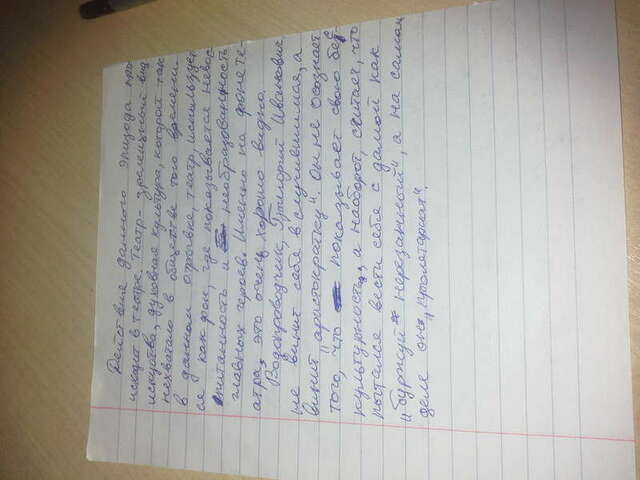 Действия данного эпизода про-
исходит в театре. Театр- зрелищный вид
искуства, духовная культура, которой так
нехватало в обществе того времени.
В данном отрывке театр использует-
ся как фон, где показывается невос-
питанность и необразованность
главных героев. Именно на фоне те-
атра, это очень хорошо видно.
Водопроводчик, Григорий Иванович,
не винит себя в случившимся, а
винит "аристократку". Он не осознает
того, что показывает свою бес-
культурность, а наоборот, считает, что
пытался вести себя с дамой как
"буржуй" нерезанный", а на самом
деле он "пролетариат".